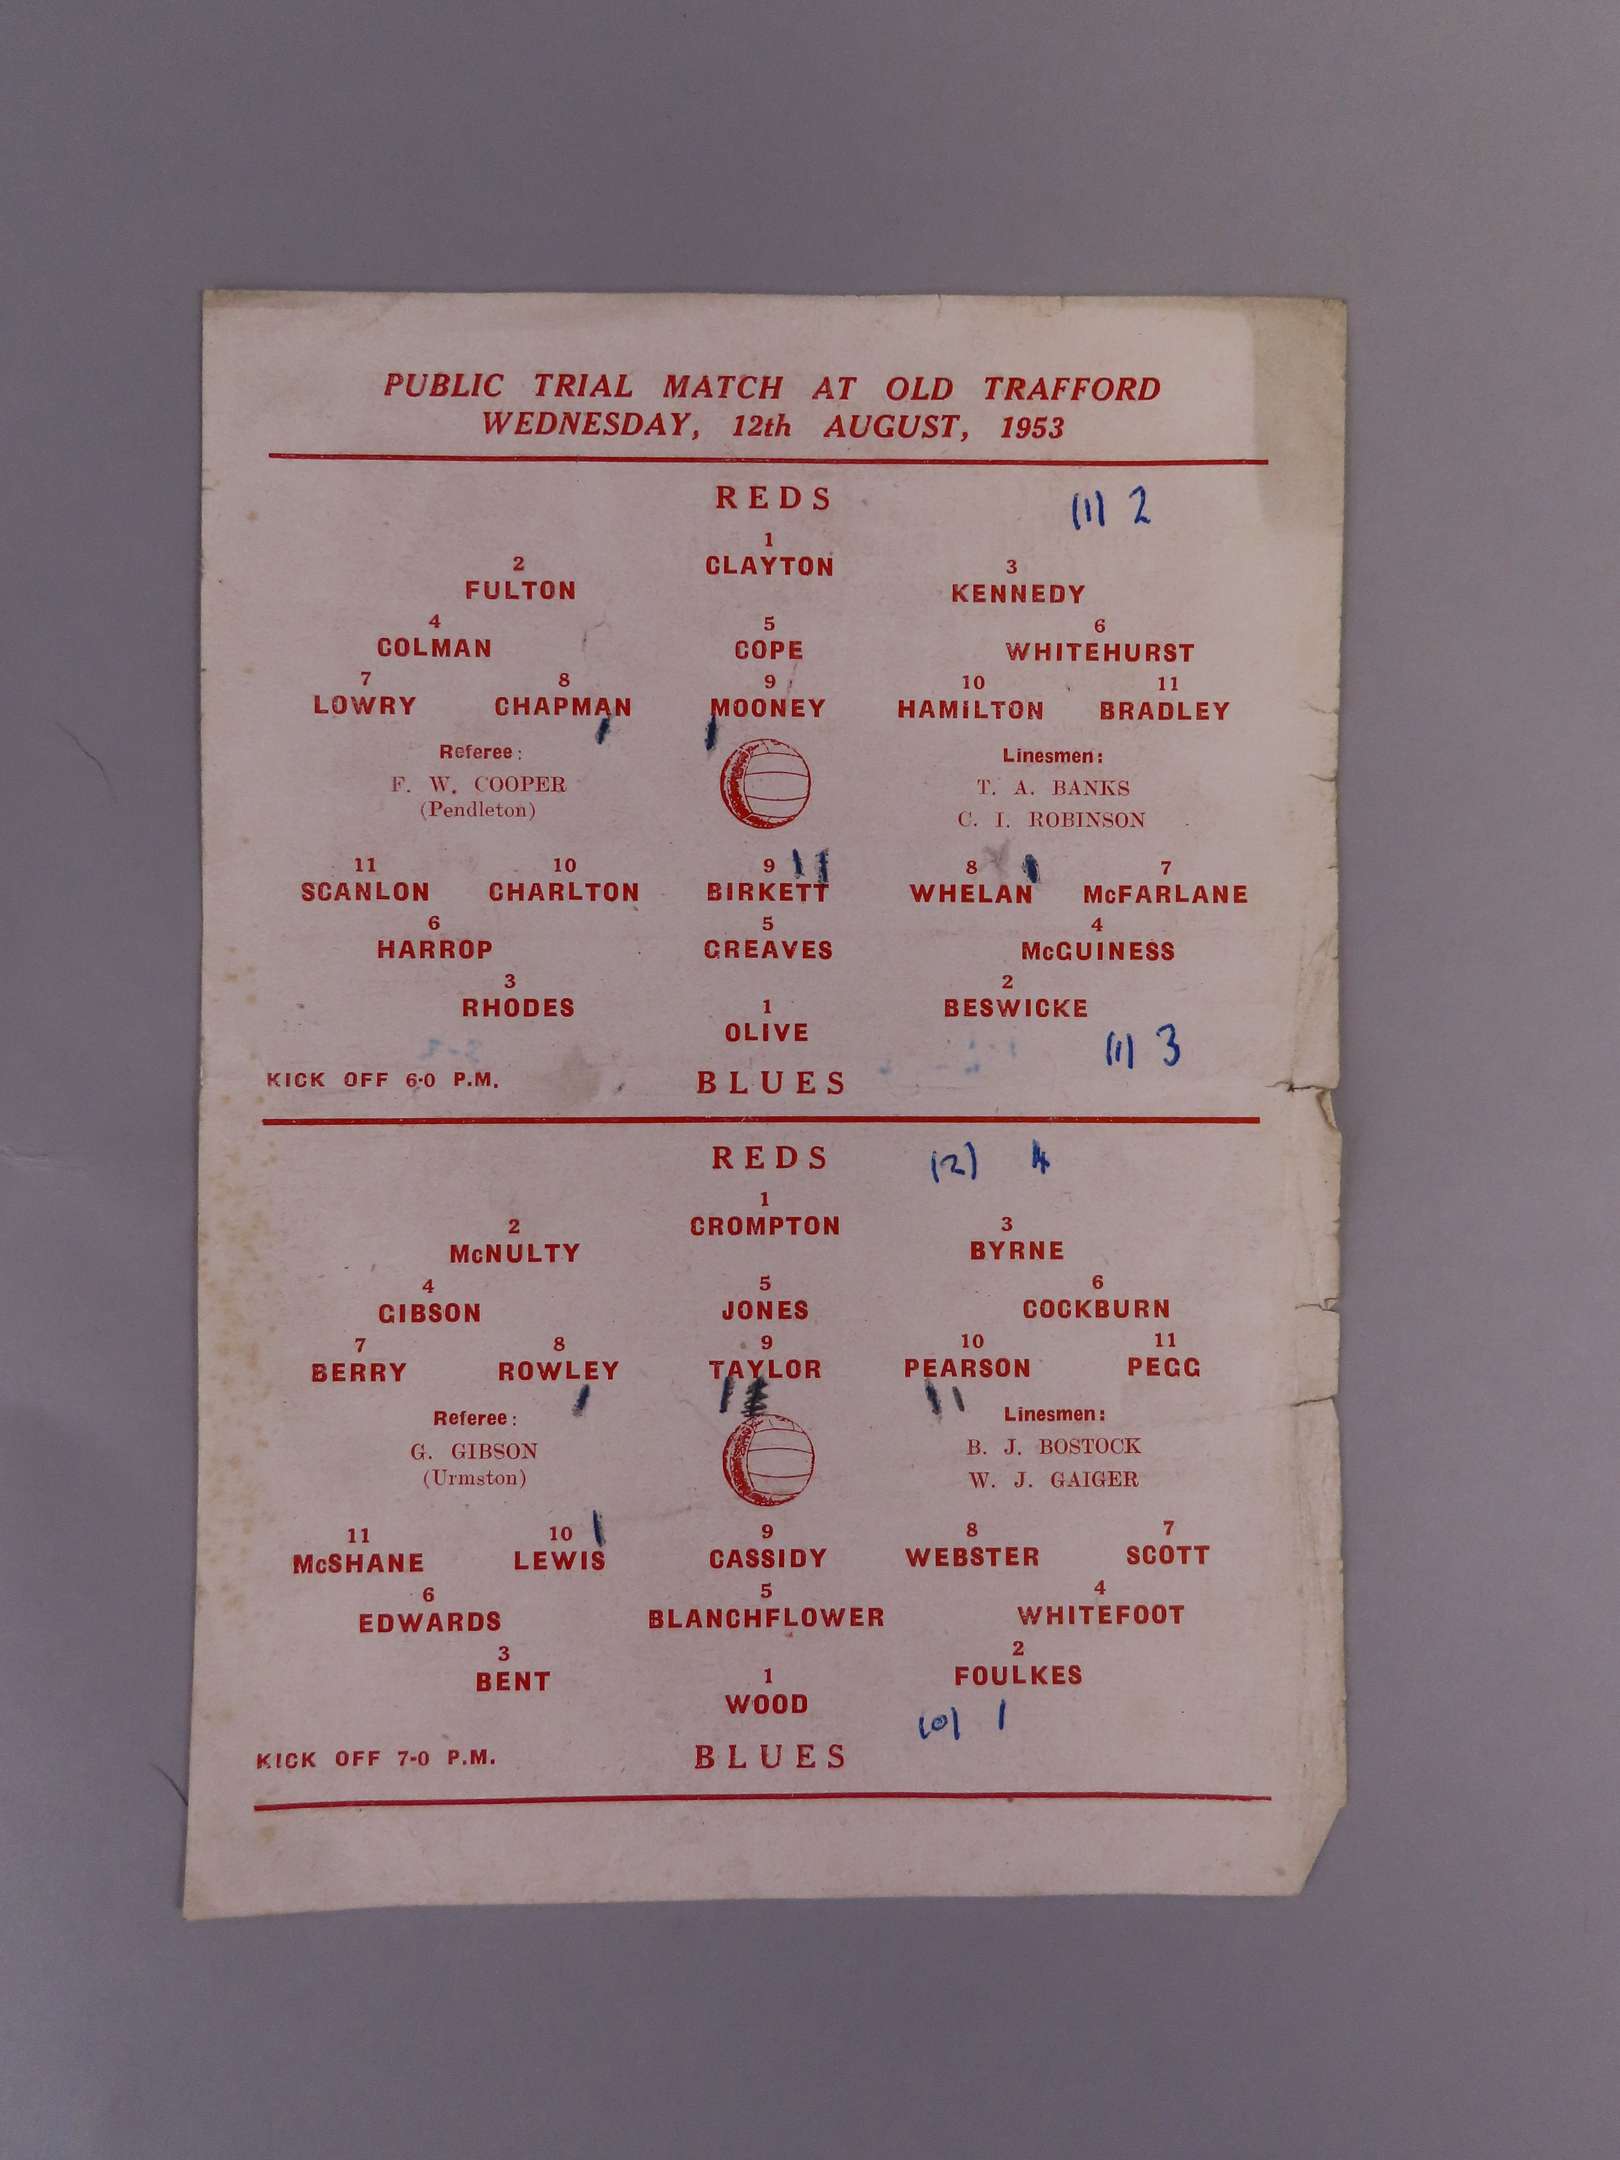 PUBLIC TRIAL MATCH AT OLD TRAFFORD
WEDNESDAY, 12th AUGUST, 1953
REDS (1) 2
1
CLAYTON
2 3
FULTON KENNEDY
4 5 6
COLMAN COPE WHITEHURST
7 8 9 10 11
LOWRY CHAPMAN MOONEY HAMILTON BRADLEY
Referee: Linesmen:
F. W. COOPER T. A. BANKS
(Pendleton) C. I. ROBINSON
11 10 9 8 7
SCANLON CHARLTON BIRKETT WHELAN McFARLANE
6 5 4
HARROP GREAVES McGUINESS
3 2
RHODES BESWICKE
1
OLIVE
(1) 3
KICK OFF 6-0 P.M. BLUES
REDS (2) 4
1
CROMPTON
2 3
McNULTY BYRNE
4 5 6
GIBSON JONES COCKBURN
7 8 9 10 11
BERRY ROWLEY TAYLOR PEARSON PEGG
Referee: Linesmen:
G. GIBSON B. J. BOSTOCK
(Urmston) W. J. GAIGER
11 10 9 8 7
McSHANE LEWIS CASSIDY WEBSTER SCOTT
6 5 4
EDWARDS BLANCHFLOWER WHITEFOOT
3 2
BENT FOULKES
1
WOOD
(0) 1
KICK OFF 7-0 P.M. BLUES